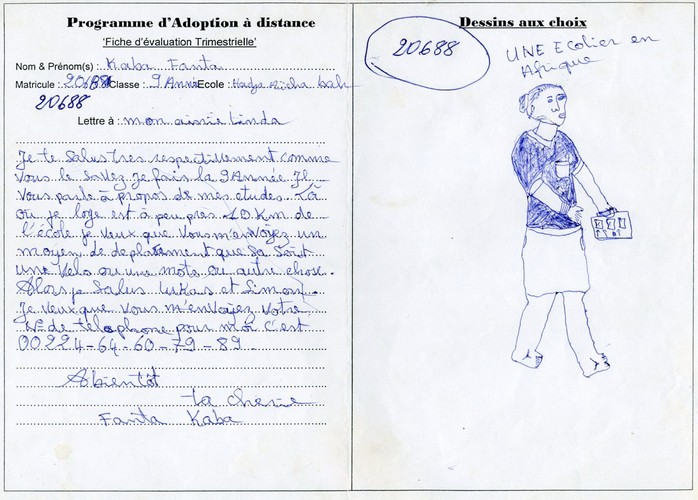 Programme d'Adoption à distance
'Fiche d'évaluation Trimestrielle'
Nom & Prénom(s) : Kaba Fanta
Matricule : 20688 Classe : 9 Année Ecole : Hadja Aicha bah
20688
Lettre à : mon aimie Linda
Je te salus tres respectillement comme
Vous le savez je fais la 9 Année Jl
Vous parle à propos de mes etudes. Là
ou je loge est à peu pres 10 Km de
l'école je veux que vous m'envoyez un
moyen de deplacement que sa soit
une velo ou une moto ou autre chose.
Alors je salus lukas et Simon.
Je veux que vous m'envoyez votre
N° de telephone pour moi c'est
00224-64-60-79-89
Abientôt
ta cherie
Fanta Kaba
Dessins aux choix
20688
UNE Ecolier en
Afrique